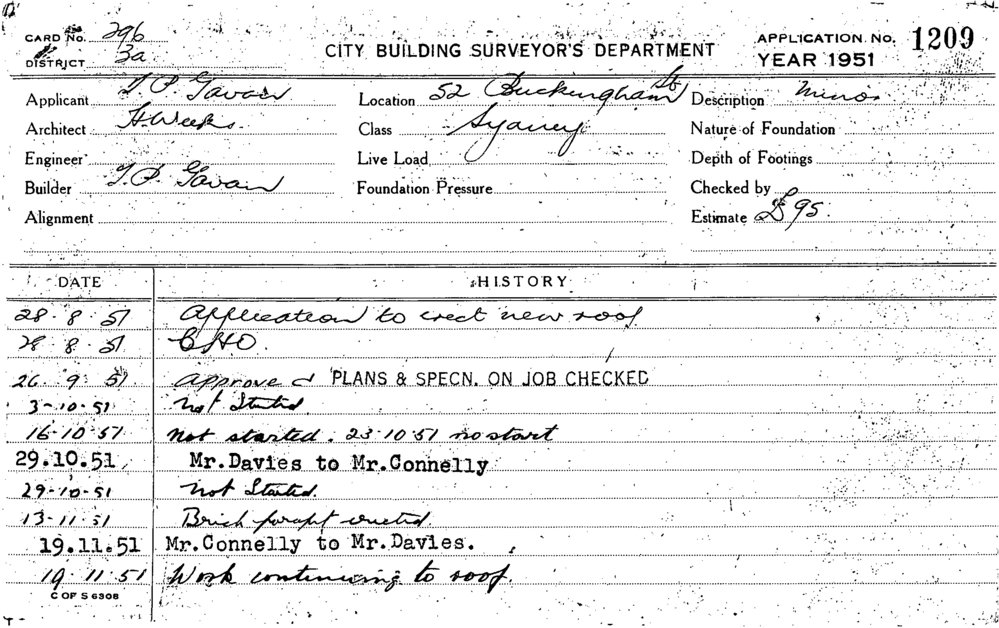 CARD No. 296
DISTRICT 3a
CITY BUILDING SURVEYOR'S DEPARTMENT
APPLICATION No. 1209
YEAR 1951
Applicant T. P. Gavan
Location 52 Buckingham St
Description Minor
Architect H. Weeks.
Class Sydney
Nature of Foundation
Engineer
Live Load
Depth of Footings
Builder T. P. Gavan
Foundation Pressure
Checked by
Alignment
Estimate £95.
DATE HISTORY
28·8·51 Application to erect new roof
28·8·51 CHO.
26·9·51 Approved PLANS & SPECN. ON JOB CHECKED
3-10-51 Not Started.
16-10-51 Not started. 23-10-51 no start
29.10.51 Mr.Davies to Mr.Connelly
29-10-51 Not Started.
13-11-51 Brick parapt erected.
19.11.51 Mr.Connelly to Mr.Davies.
19·11·51 Work continuing to roof.
C OF S 6308